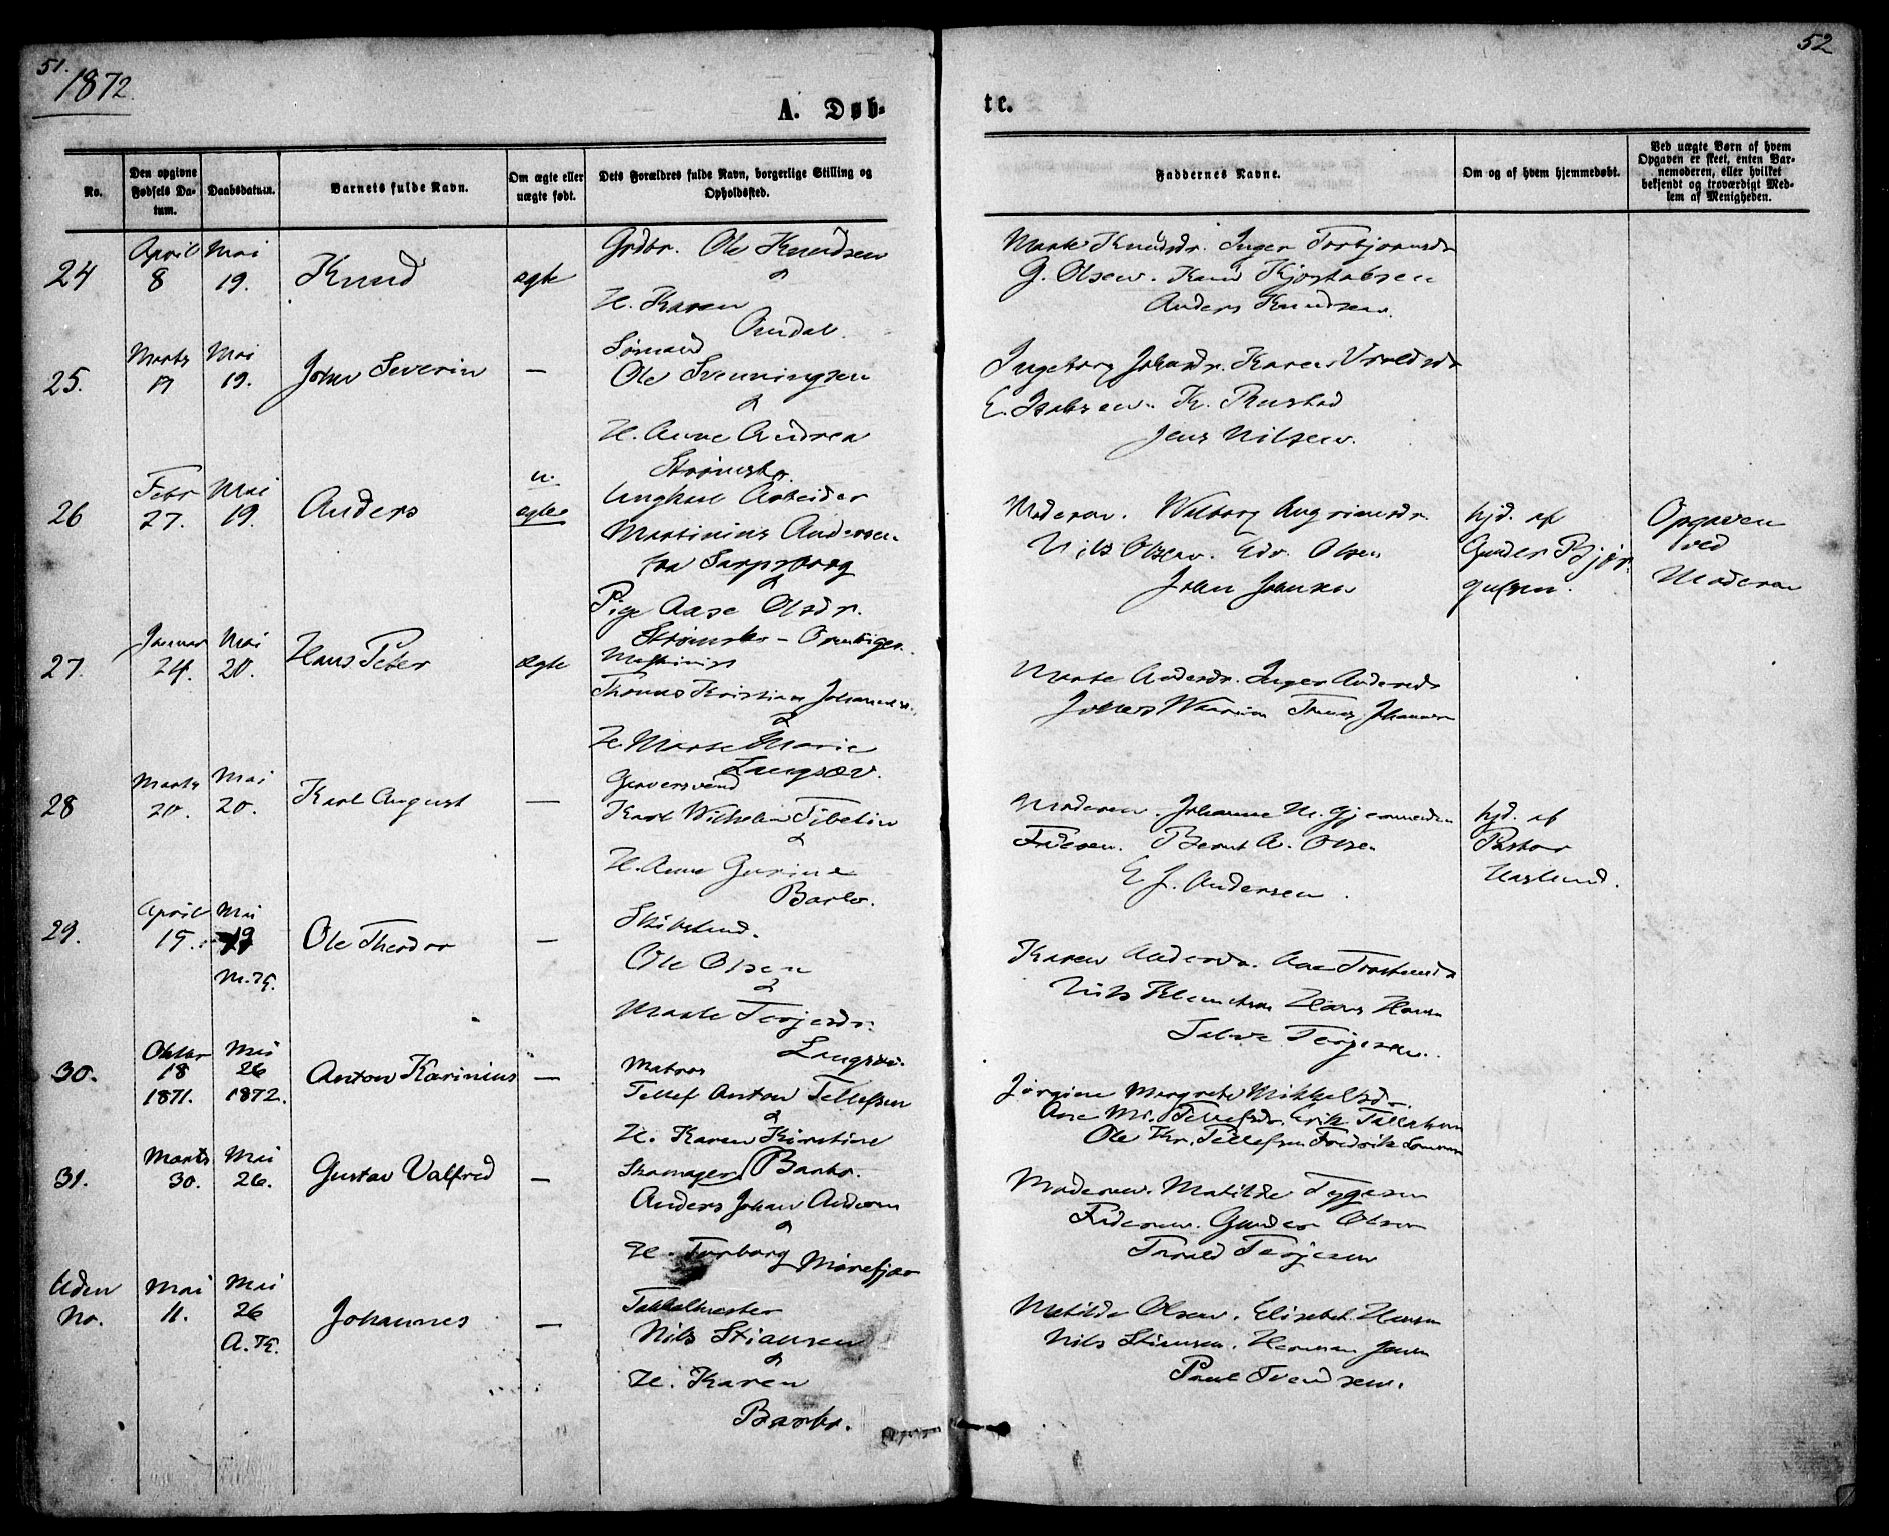 51.
1872
52
A. Døb-
te.
No.
Den opgivne Fødsels Da-tum.
Daabsdatum.
Barnets fulde Navn.
Om ægte eller uægte født.
Dets Forældres fulde Navn, borgerlige Stilling og Opholdssted.
Faddernes Navne.
Om og af hvem hjemmedøbt.
Ved uægte Børn af hvem Opgaven er skeet, enten Bar-nemoderen, eller hvilket bekjendt og troværdigt Med-lem af Menigheden.
24
April
8
Mai
19.
Knud
ægte
Grdbr. Ole Knudsen
&
H. Karen
Omdal.
Marte Knudsdr. Inger Torbjørnsdr
G. Olsen. Knud
Anders Knudsen.
25.
Marts
19
Mai
19.
Johan Severin
—
Sømand
Ole Svenningsen
&
H. Anne Andrea
Strømsbo.
Ingeborg Johnsdr. Karen
E. Isaksen. K. Rustad
Jens Nilsen.
26
Febr
27.
Mai
19.
Anders
u.
ægte
Ungkarl Arbeider
Martinius Andersen
fra Sarpsborg
&
Pige Aase Olsdr.
Strømsbo –
Moderen. Valborg
Nils Olsen. Edv. Olsen
John Johnsen
hjd. af
Gunder Bjør-
gulsen.
Opgaven
ved
Moderen
27.
Januar
24.
Mai
20.
Hans Peter
ægte
Maskinist
Thomas Kristian Johannesen
&
H. Marte Marie
Langsæv.
Marte Andersdr. Inger Andersdr
28
Marts
20.
Mai
20.
Karl August
—
Garversvend
Karl Wilhelm Tibelin
&
H. Anne Gurine
Barbo.
Moderen. Johanne M.
Faderen. Bernt A. Olsen
E J. Andersen.
hjd. af
Pastor
Haslund.
29.
April
15.
Mai
19
M.K.
Ole Theodor
—
Skibstmd.
Ole Olsen
&
Marte Terjesdr.
Langsæv.
Karen Andersdr. Ane
Nils Klemetsen Hans Hansen
Salve Terjesen.
30.
Oktbr
18
1871.
Mai
26
1872.
Anton Karinius
—
Matros
Tellef Anton Tellefsen
&
H. Karen Kirstine
Barbo.
Jørgine Margrete Mikkelsdr.
Ane M. Tellefsdr. Erik Tellefsen
Ole Kr. Tellefsen Fredrik
31.
Marts
30.
Mai
26.
Gustav Valfred
—
Skomager
Anders Johan Andersen
&
H. Torborg Mørefjær
Moderen. Matilde Tygesen
Faderen. Gunder Olsen
Terjesen
Uden
No.
Mai
11.
Mai
26
A.K.
Johannes
—
Takkelmester
Nils Stiansen
&
H. Karen
Barbo.
Matilde Olsen. Elisabet Hansen
Nils Stiansen. Herman Jensen
Poul Svendsen.